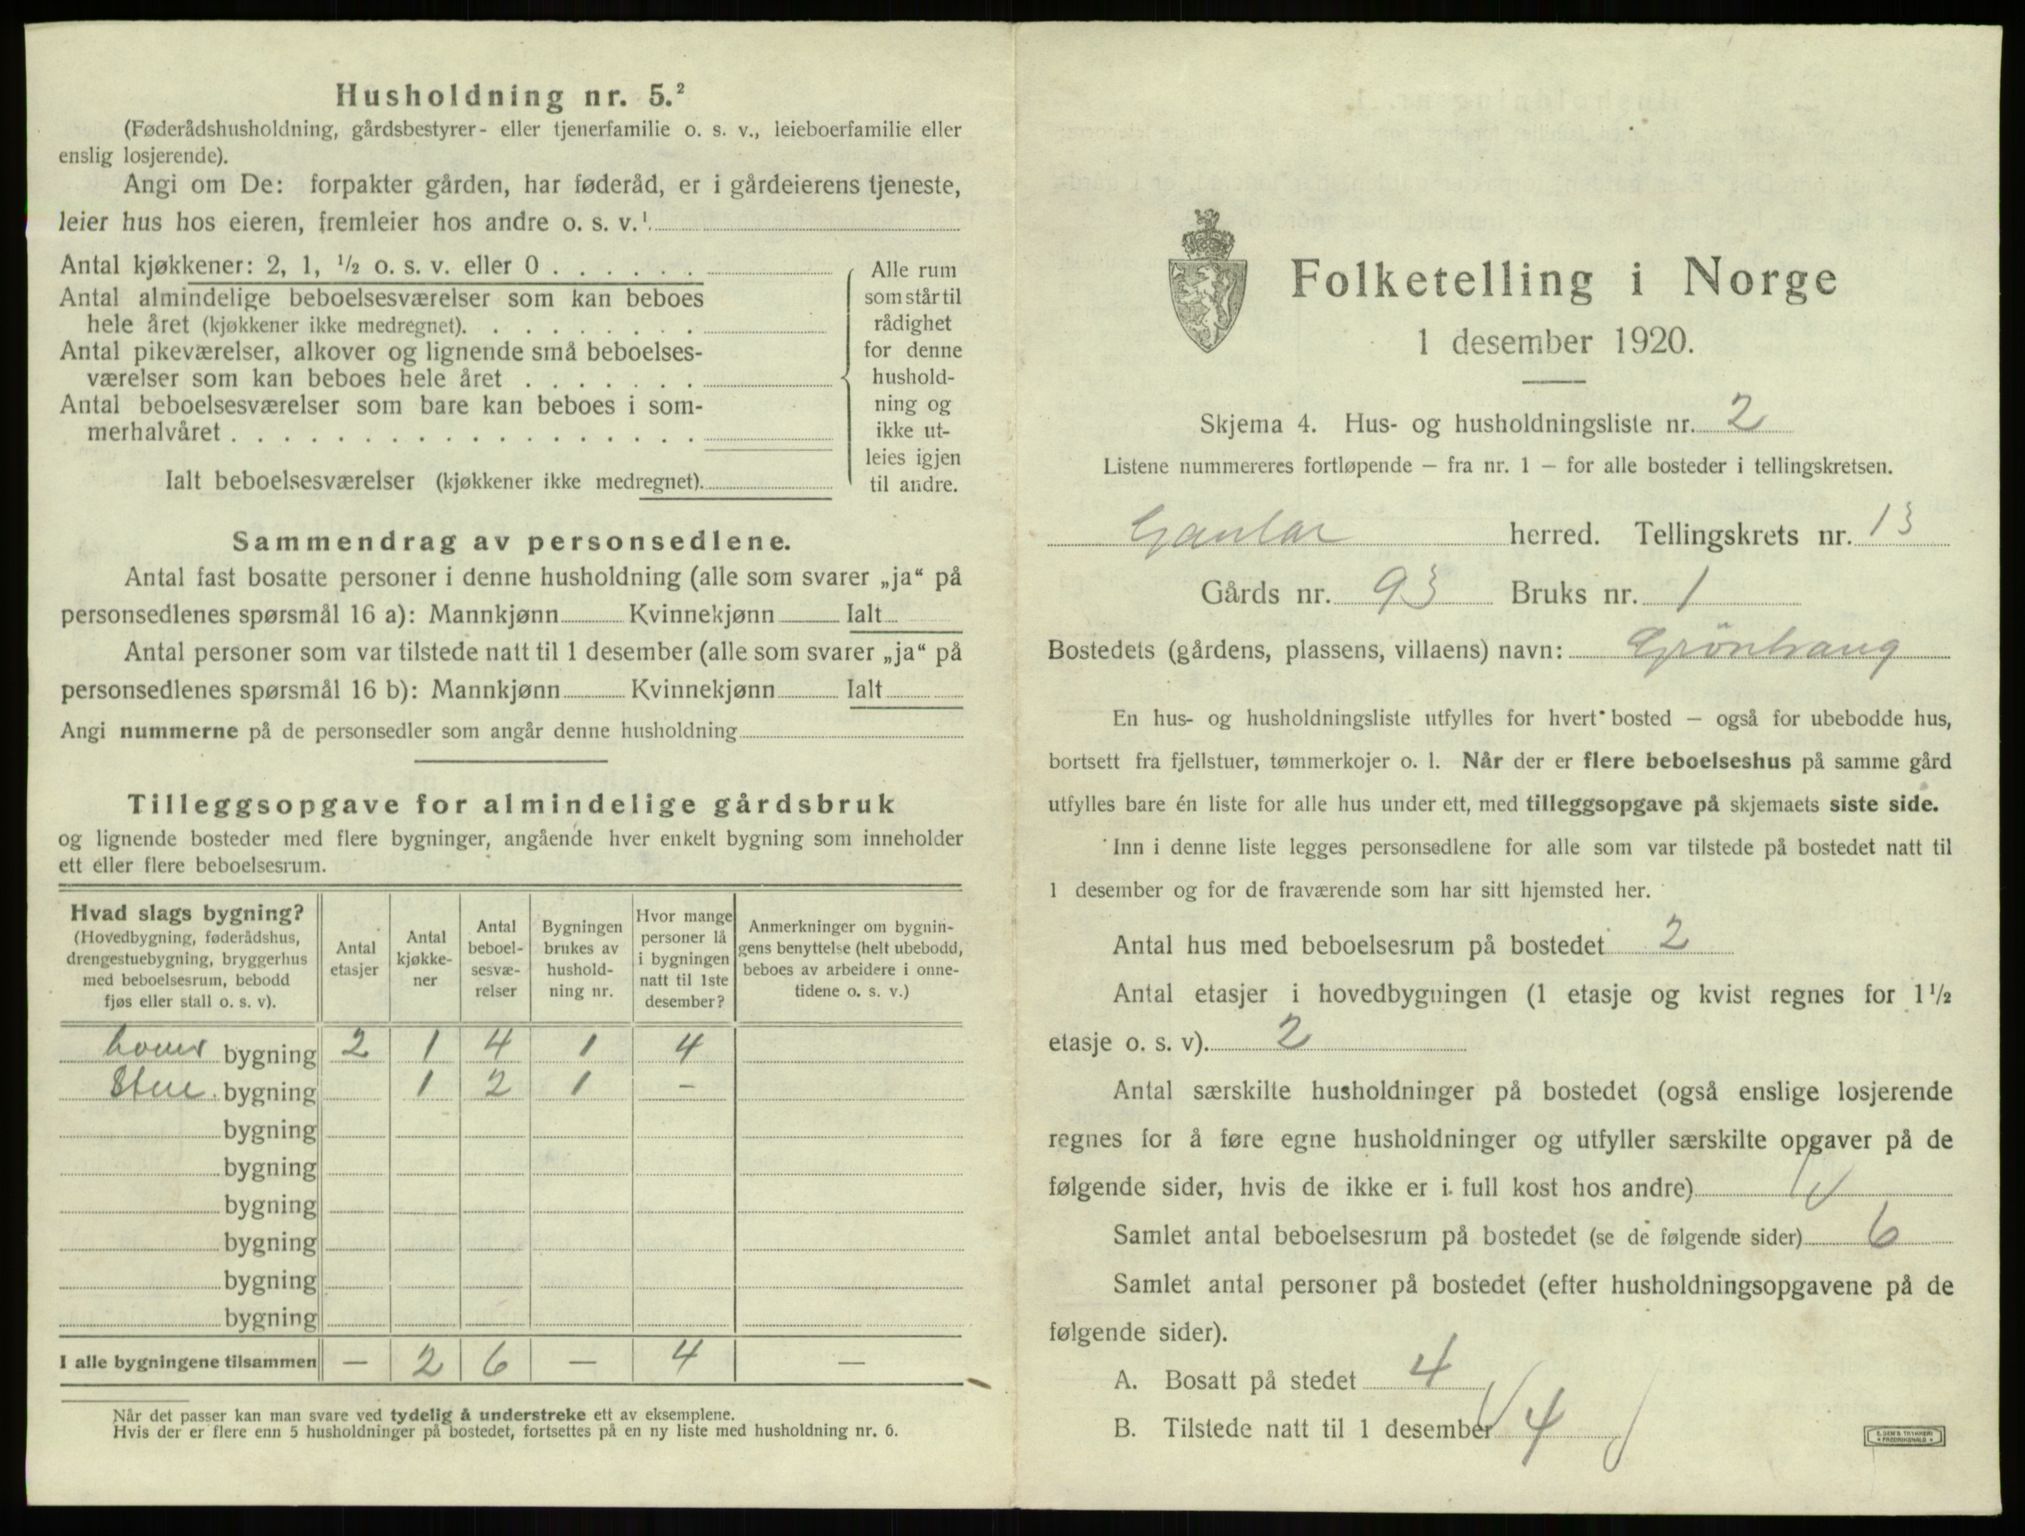 Husholdning nr. 5.²
(Føderådshusholdning, gårdsbestyrer- eller tjenerfamilie o. s. v., leieboerfamilie eller
enslig losjerende).
Angi om De: forpakter gården, har føderåd, er i gårdeierens tjeneste,
leier hus hos eieren, fremleier hos andre o. s. v.¹
Antal kjøkkener: 2, 1, ½ o. s. v. eller 0 . . . . . .
Antal almindelige beboelsesværelser som kan beboes
hele året (kjøkkener ikke medregnet). . . . . . . . .
Antal pikeværelser, alkover og lignende små beboelses-
værelser som kan beboes hele året . . . . . . .
Antal beboelsesværelser som bare kan beboes i som-
merhalvåret . . . . . . . . . . . . . . . . . .
Ialt beboelsesværelser (kjøkkener ikke medregnet).
Alle rum
som står til
rådighet
for denne
hushold-
ning og
ikke ut-
leies igjen
til andre.
Sammendrag av personsedlene.
Antal fast bosatte personer i denne husholdning (alle som svarer „ja“ på
personsedlenes spørsmål 16 a): Mannkjønn Kvinnekjønn Ialt
Antal personer som var tilstede natt til 1 desember (alle som svarer „ja“ på
personsedlenes spørsmål 16 b): Mannkjønn Kvinnekjønn Ialt
Angi nummerne på de personsedler som angår denne husholdning
Tilleggsopgave for almindelige gårdsbruk
og lignende bosteder med flere bygninger, angående hver enkelt bygning som inneholder
ett eller flere beboelsesrum.
Hvad slags bygning?
(Hovedbygning, føderådshus,
drengestuebygning, bryggerhus
med beboelsesrum, bebodd
fjøs eller stall o. s. v).
Antal
etasjer
Antal
kjøkke-
ner
Antal
beboel-
sesvæ-
relser
Bygningen
brukes av
hushold-
ning nr.
Hvor mange
personer lå
i bygningen
natt til 1ste
desember?
Anmerkninger om bygnin-
gens benyttelse (helt ubebodd,
beboes av arbeidere i onne-
tidene o. s. v.)
bygning 2 1 4 1 4
Stue bygning 1 2 1 –
bygning
bygning
bygning
bygning
bygning
bygning
I alle bygningene tilsammen — 2 6 — 4 —
Når det passer kan man svare ved tydelig å understreke ett av eksemplene.
Hvis der er flere enn 5 husholdninger på bostedet, fortsettes på en ny liste med husholdning nr. 6.
Folketelling i Norge
1 desember 1920.
Skjema 4. Hus- og husholdningsliste nr. 2
Listene nummereres fortløpende – fra nr. 1 – for alle bosteder i tellingskretsen.
Gaular herred. Tellingskrets nr. 13
Gårds nr. 93 Bruks nr. 1
Bostedets (gårdens, plassens, villaens) navn: Grönhaug
En hus- og husholdningsliste utfylles for hvert bosted – også for ubebodde hus,
bortsett fra fjellstuer, tømmerkojer o. l. Når der er flere beboelseshus på samme gård
utfylles bare én liste for alle hus under ett, med tilleggsopgave på skjemaets siste side.
Inn i denne liste legges personsedlene for alle som var tilstede på bostedet natt til
1 desember og for de fraværende som har sitt hjemsted her.
Antal hus med beboelsesrum på bostedet 2
Antal etasjer i hovedbygningen (1 etasje og kvist regnes for 1½
etasje o. s. v). 2
Antal særskilte husholdninger på bostedet (også enslige losjerende
regnes for å føre egne husholdninger og utfyller særskilte opgaver på de
følgende sider, hvis de ikke er i full kost hos andre)
Samlet antal beboelsesrum på bostedet (se de følgende sider) 6
Samlet antal personer på bostedet (efter husholdningsopgavene på de
følgende sider).
A. Bosatt på stedet 4
B. Tilstede natt til 1 desember 4